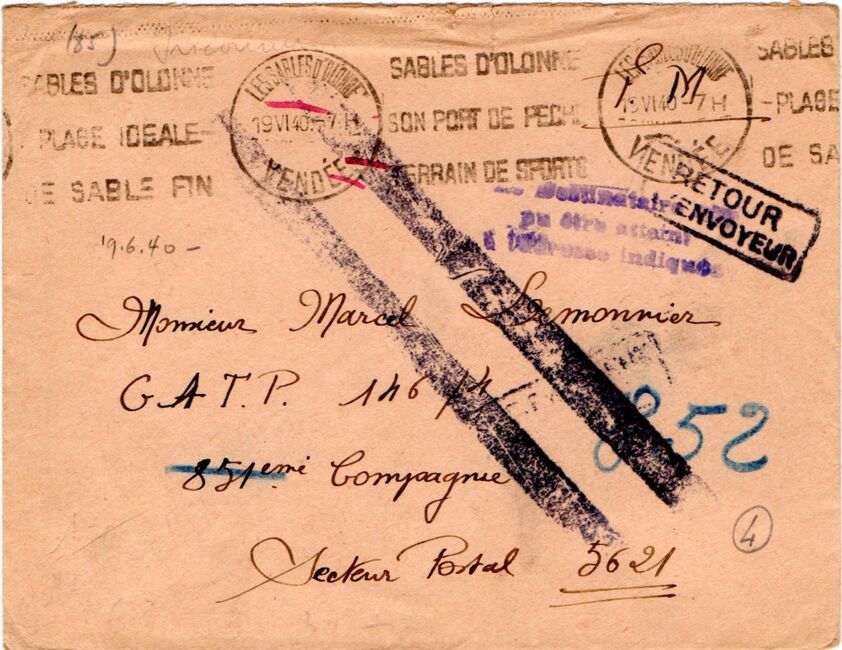 (85)
SABLES D'OLONNE
PLAGE IDEALE-
DE SABLE FIN
LES SABLES D'OLONNE
19 VI 40 -7 H
VENDÉE
SABLES D'OLONNE
SON PORT DE PECHE
TERRAIN DE SPORTS
F M
LES SABLES D'OLONNE
19 VI 40 -7 H
VENDÉE
SABLES
-PLAGE
DE SA
RETOUR
ENVOYEUR
Destinataire
pu être atteint
à l'adresse indiquée
19.6.40 -
Monsieur Marcel Lemonnier
G.A.T.P. 146/4
852
851ème Compagnie
4
Secteur Postal 5621